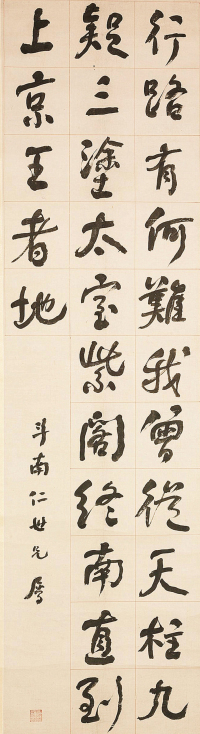 行路有何難我曾從天柱九
疑三塗太室紫閣終南直到
上京王者地
斗南仁世兄屬